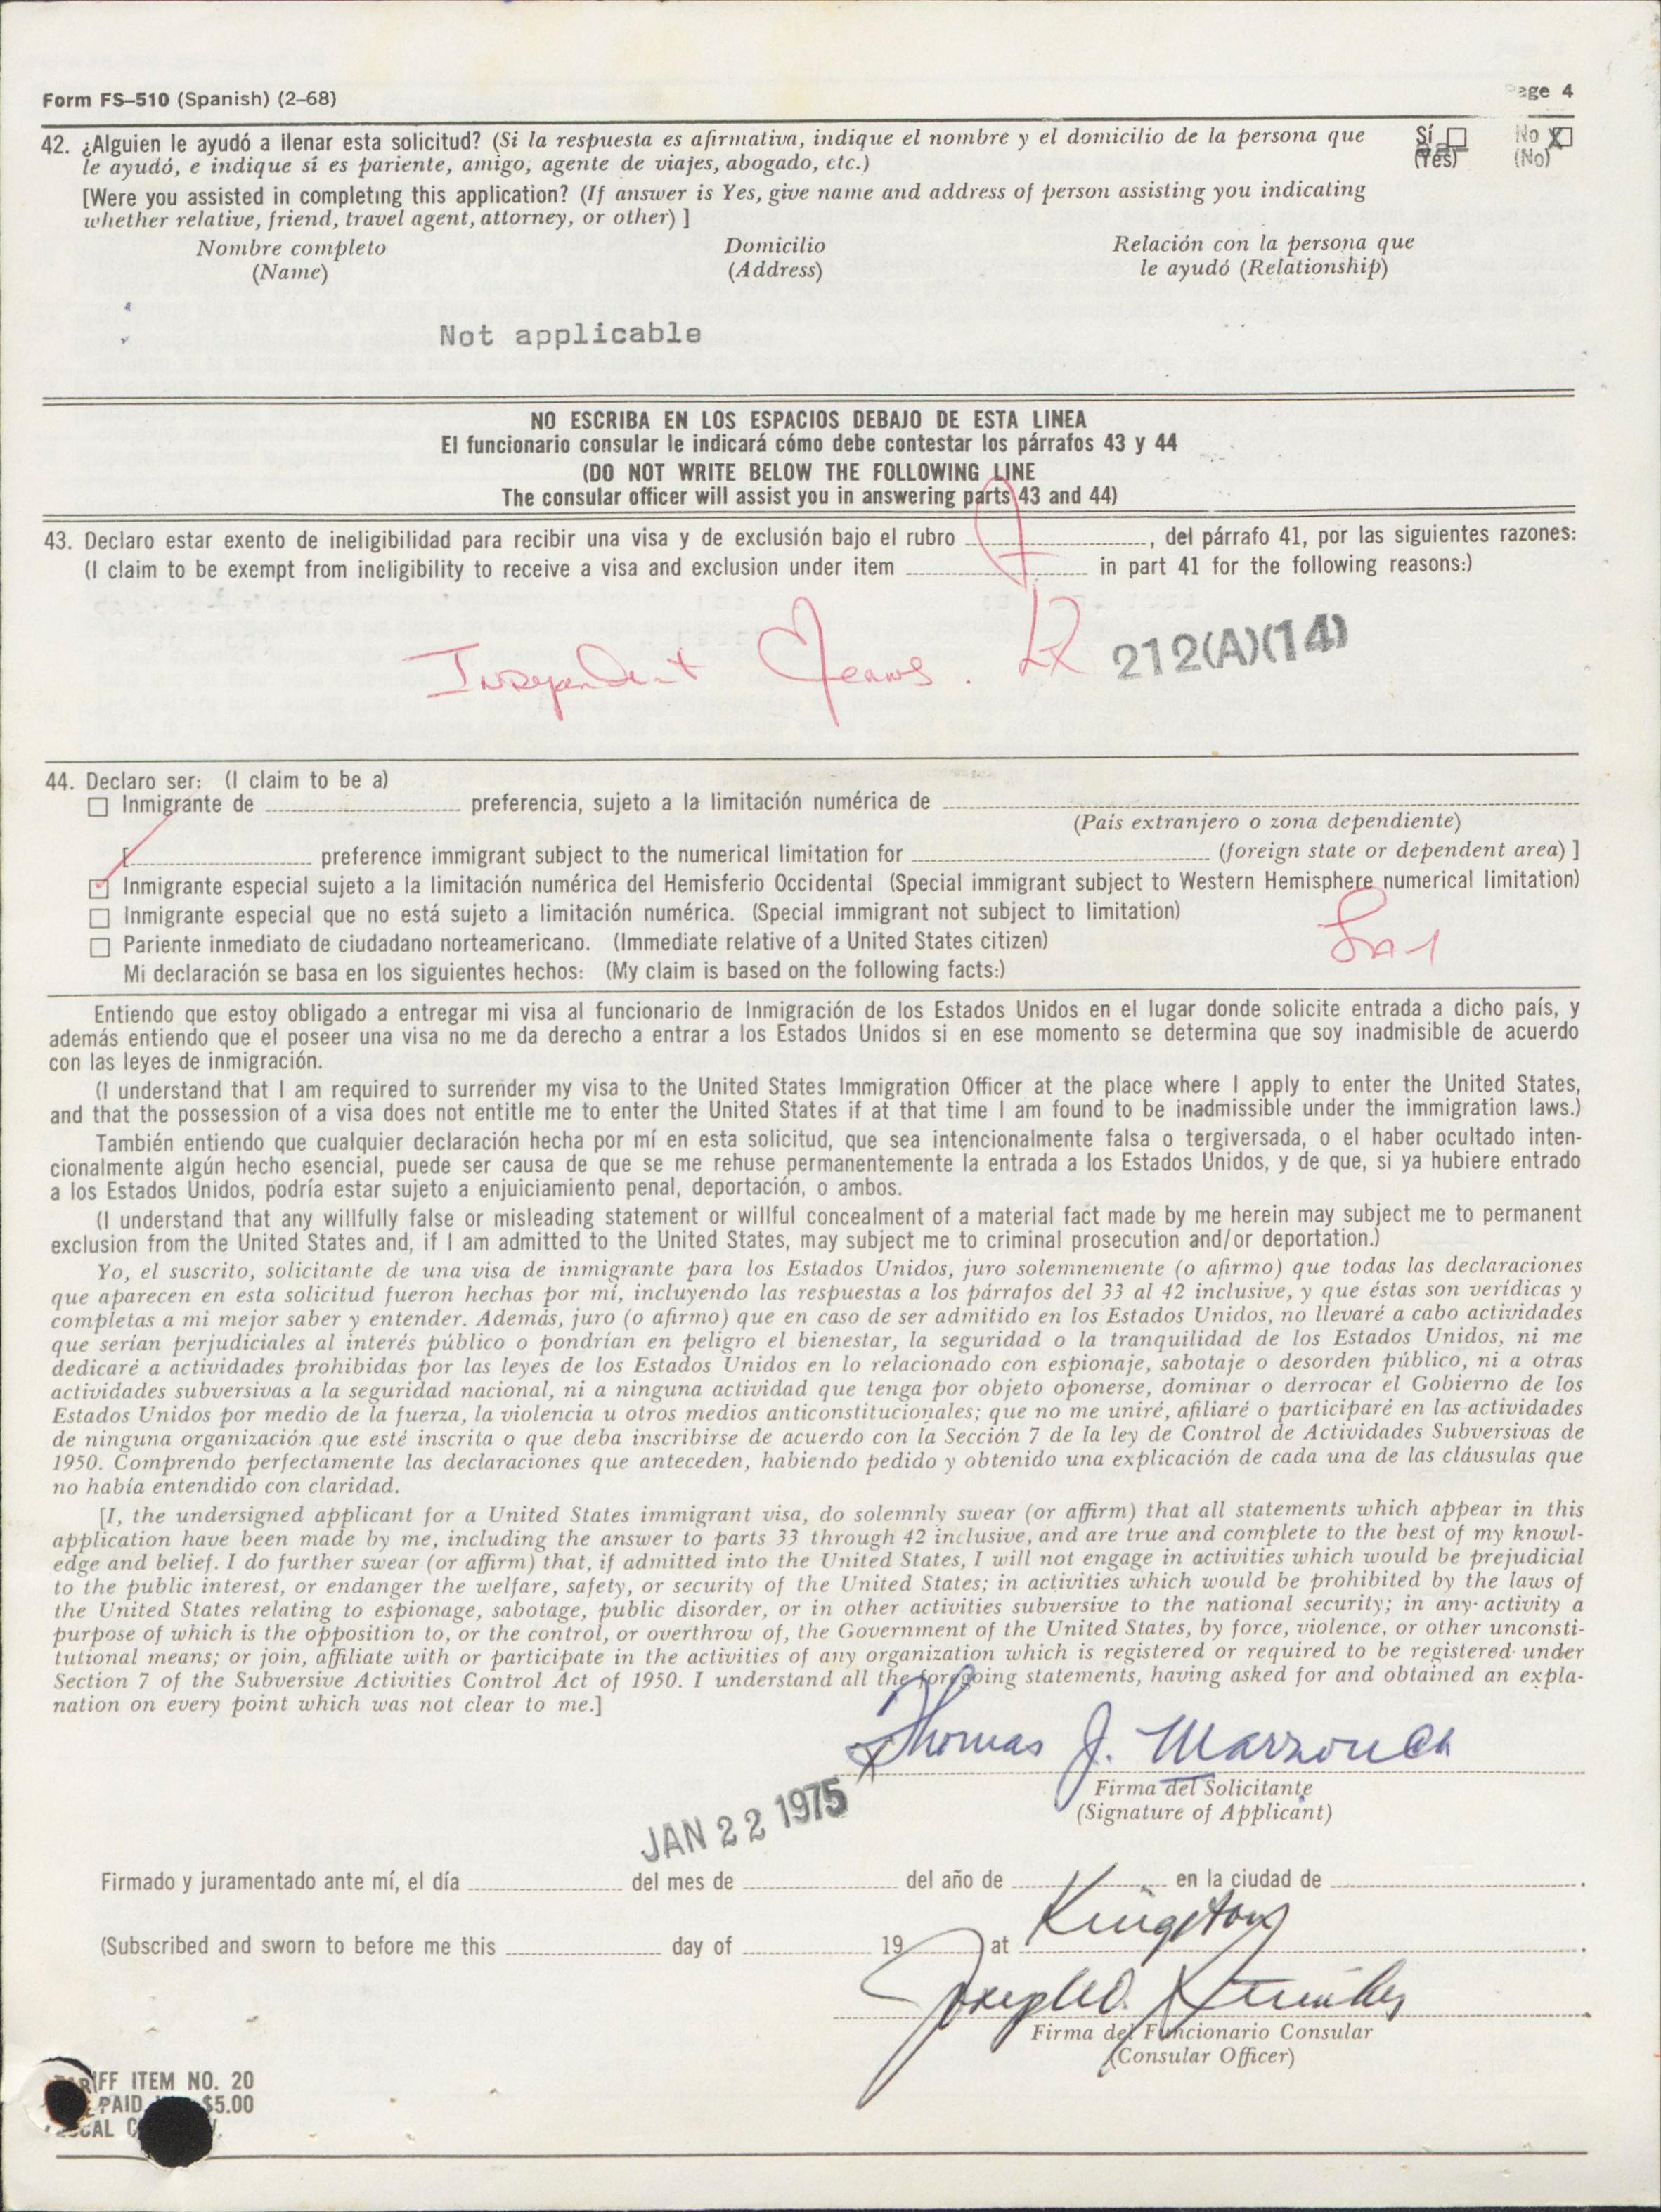 Form FS–510 (Spanish) (2–68)
Page 4
42. ¿Alguien le ayudó a llenar esta solicitud? (Si la respuesta es afirmativa, indique el nombre y el domicilio de la persona que
Sí ☐ No ☒
le ayudó, e indique si es pariente, amigo, agente de viajes, abogado, etc.)
(Yes) (No)
[Were you assisted in completing this application? (If answer is Yes, give name and address of person assisting you indicating
whether relative, friend, travel agent, attorney, or other) ]
Nombre completo Domicilio Relación con la persona que
(Name) (Address) le ayudó (Relationship)
Not applicable
NO ESCRIBA EN LOS ESPACIOS DEBAJO DE ESTA LINEA
El funcionario consular le indicará cómo debe contestar los párrafos 43 y 44
(DO NOT WRITE BELOW THE FOLLOWING LINE
The consular officer will assist you in answering parts 43 and 44)
43. Declaro estar exento de ineligibilidad para recibir una visa y de exclusión bajo el rubro , del párrafo 41, por las siguientes razones:
(I claim to be exempt from ineligibility to receive a visa and exclusion under item in part 41 for the following reasons:)
Independent Means. 212(A)(14)
44. Declaro ser: (I claim to be a)
☐ Inmigrante de preferencia, sujeto a la limitación numérica de
(País extranjero o zona dependiente)
[ preference immigrant subject to the numerical limitation for (foreign state or dependent area) ]
☑ Inmigrante especial sujeto a la limitación numérica del Hemisferio Occidental (Special immigrant subject to Western Hemisphere numerical limitation)
☐ Inmigrante especial que no está sujeto a limitación numérica. (Special immigrant not subject to limitation)
☐ Pariente inmediato de ciudadano norteamericano. (Immediate relative of a United States citizen)
Mi declaración se basa en los siguientes hechos: (My claim is based on the following facts:)
Entiendo que estoy obligado a entregar mi visa al funcionario de Inmigración de los Estados Unidos en el lugar donde solicite entrada a dicho país, y
además entiendo que el poseer una visa no me da derecho a entrar a los Estados Unidos si en ese momento se determina que soy inadmisible de acuerdo
con las leyes de inmigración.
(I understand that I am required to surrender my visa to the United States Immigration Officer at the place where I apply to enter the United States,
and that the possession of a visa does not entitle me to enter the United States if at that time I am found to be inadmissible under the immigration laws.)
También entiendo que cualquier declaración hecha por mí en esta solicitud, que sea intencionalmente falsa o tergiversada, o el haber ocultado inten-
cionalmente algún hecho esencial, puede ser causa de que se me rehuse permanentemente la entrada a los Estados Unidos, y de que, si ya hubiere entrado
a los Estados Unidos, podría estar sujeto a enjuiciamiento penal, deportación, o ambos.
(I understand that any willfully false or misleading statement or willful concealment of a material fact made by me herein may subject me to permanent
exclusion from the United States and, if I am admitted to the United States, may subject me to criminal prosecution and/or deportation.)
Yo, el suscrito, solicitante de una visa de inmigrante para los Estados Unidos, juro solemnemente (o afirmo) que todas las declaraciones
que aparecen en esta solicitud fueron hechas por mí, incluyendo las respuestas a los párrafos del 33 al 42 inclusive, y que éstas son verídicas y
completas a mi mejor saber y entender. Además, juro (o afirmo) que en caso de ser admitido en los Estados Unidos, no llevaré a cabo actividades
que serían perjudiciales al interés público o pondrían en peligro el bienestar, la seguridad o la tranquilidad de los Estados Unidos, ni me
dedicaré a actividades prohibidas por las leyes de los Estados Unidos en lo relacionado con espionaje, sabotaje o desorden público, ni a otras
actividades subversivas a la seguridad nacional, ni a ninguna actividad que tenga por objeto oponerse, dominar o derrocar el Gobierno de los
Estados Unidos por medio de la fuerza, la violencia u otros medios anticonstitucionales; que no me uniré, afiliaré o participaré en las actividades
de ninguna organización que esté inscrita o que deba inscribirse de acuerdo con la Sección 7 de la ley de Control de Actividades Subversivas de
1950. Comprendo perfectamente las declaraciones que anteceden, habiendo pedido y obtenido una explicación de cada una de las cláusulas que
no había entendido con claridad.
[I, the undersigned applicant for a United States immigrant visa, do solemnly swear (or affirm) that all statements which appear in this
application have been made by me, including the answer to parts 33 through 42 inclusive, and are true and complete to the best of my knowl-
edge and belief. I do further swear (or affirm) that, if admitted into the United States, I will not engage in activities which would be prejudicial
to the public interest, or endanger the welfare, safety, or security of the United States; in activities which would be prohibited by the laws of
the United States relating to espionage, sabotage, public disorder, or in other activities subversive to the national security; in any activity a
purpose of which is the opposition to, or the control, or overthrow of, the Government of the United States, by force, violence, or other unconsti-
tutional means; or join, affiliate with or participate in the activities of any organization which is registered or required to be registered under
Section 7 of the Subversive Activities Control Act of 1950. I understand all the foregoing statements, having asked for and obtained an expla-
nation on every point which was not clear to me.]
Thomas J. Marzouca
Firma del Solicitante
(Signature of Applicant)
JAN 22 1975
Firmado y juramentado ante mí, el día del mes de del año de en la ciudad de .
Kingston
(Subscribed and sworn to before me this day of 19 at .
Firma del Funcionario Consular
(Consular Officer)
TARIFF ITEM NO. 20
PAID $5.00